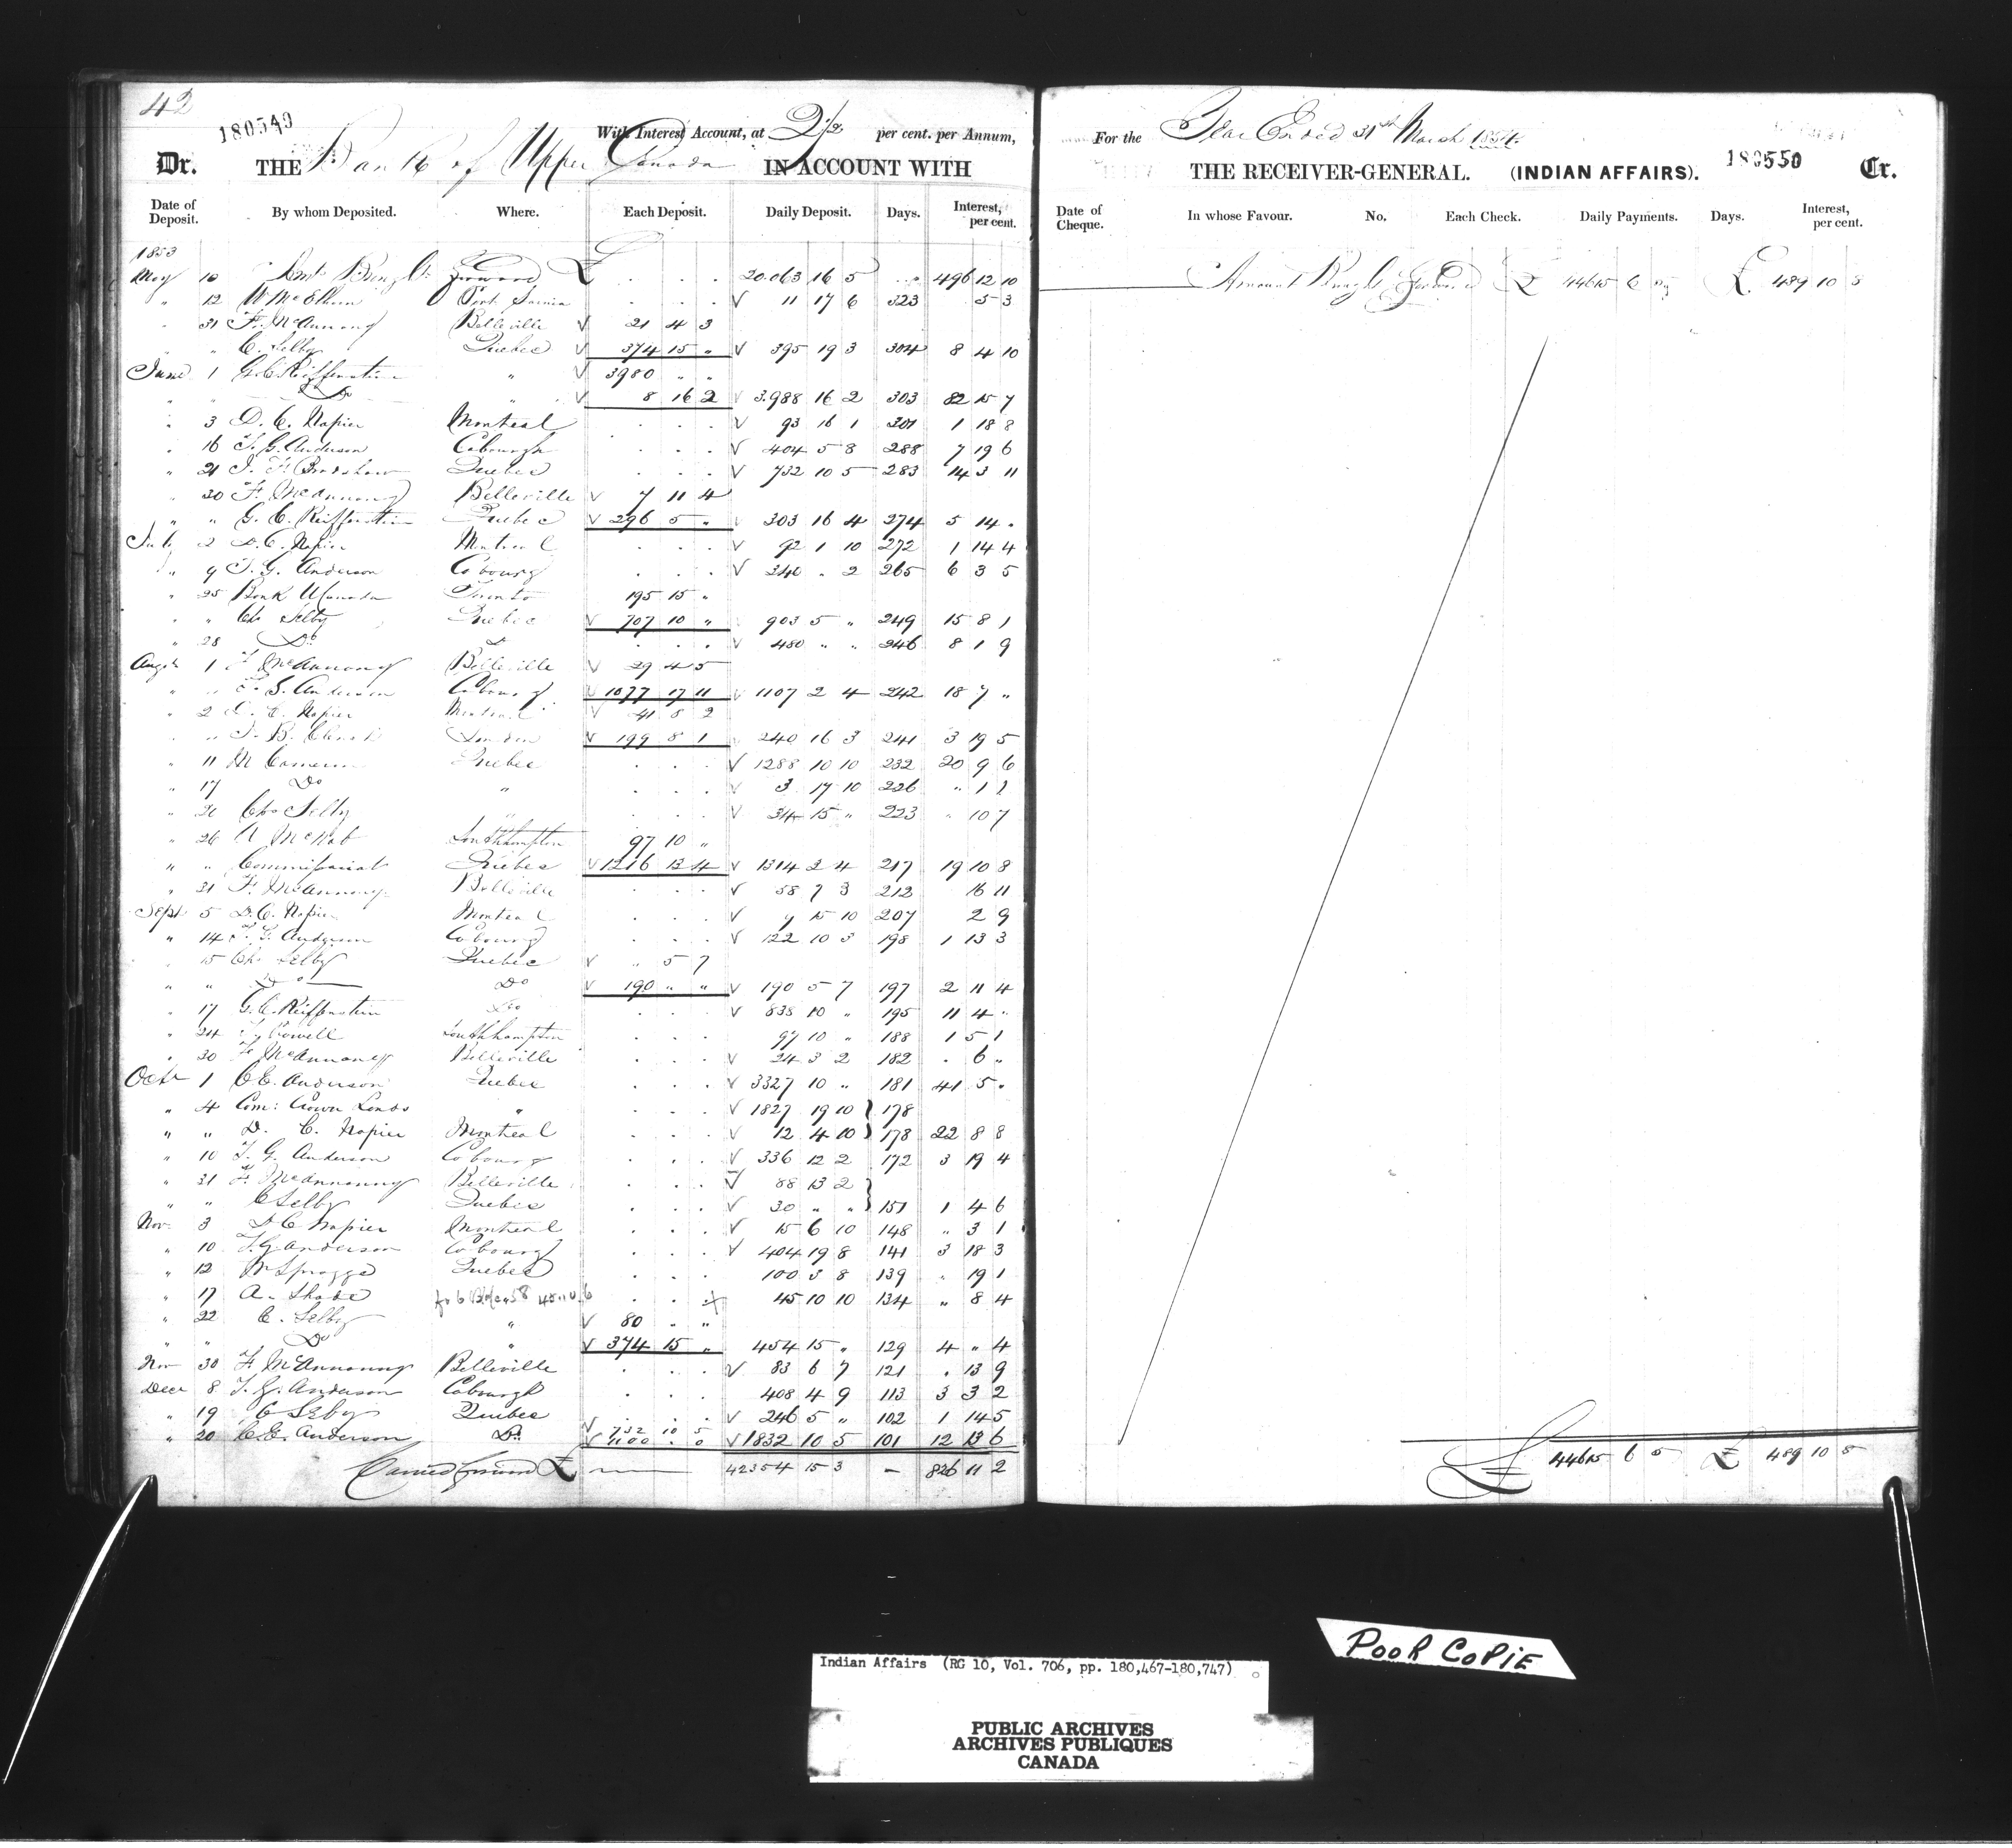 42
180549
With Interest Account, at 2½ per cent. per Annum,
Dr. THE Bank of Upper Canada IN ACCOUNT WITH
Date of Deposit. By whom Deposited. Where. Each Deposit. Daily Deposit. Days. Interest, per cent.
1853
May 10 Amt Brought forward £ . . . 20.063 16 5 " 496 12 10
" 12 Port Sarnia . . . V 11 17 6 323 5 3
" 31 F. McAnnany Belleville V 21 4 3
" " C. Selby Quebec V 374 15 " V 395 19 3 304 8 4 10
June 1 G. C. Reiffenstein " V 3980 " "
" " Do " V 8 16 2 V 3.988 16 2 303 82 15 7
" 3 D. C. Napier Montreal . . . V 93 16 1 301 1 18 8
" 16 T. G. Anderson Cobourgh . . . V 404 5 8 288 7 19 6
" 21 J. F. Bradshaw Quebec . . . V 732 10 5 283 14 3 11
" 30 F. McAnnany Belleville V 7 11 4
" " G. C. Reiffenstein Quebec V 296 5 " V 303 16 4 274 5 14 .
July 2 D. C. Napier Montreal . . . V 92 1 10 272 1 14 4
" 9 T. G. Anderson Cobourg . . . V 340 " 2 265 6 3 5
" 25 Bank U Canada Toronto 195 15 "
" " Chs Selby Quebec V 707 10 " 903 5 " 249 15 8 1
" 28 Do Do . . . V 480 " " 246 8 1 9
Augt 1 F McAnnany Belleville V 29 4 5
" " T. G. Anderson Cobourg V 1077 17 11 V 1107 2 4 242 18 7 "
" 2 D. C. Napier Montreal V 41 8 2
" " J. B. Clench London V 199 8 1 240 16 3 241 3 19 5
" 11 M Cameron Quebec . . . V 1288 10 10 232 20 9 6
" 17 Do " . . . V 3 17 10 226 " 1 2
" 20 Chs Selby " . . . V 34 15 " 223 " 10 7
" 26 A McNab Southhampton 97 10 "
" " Commissariat Quebec V 1216 13 4 V 1314 3 4 217 19 10 8
" 31 F. McAnnany Belleville . . . V 58 7 3 212 16 11
Sept 5 D. C. Napier Montreal . . . V 7 15 10 207 2 9
" 14 T. G. Anderson Cobourg . . . V 122 10 3 198 1 13 3
" 15 Chs Selby Quebec V " 5 7
" " Do Do V 190 " " V 190 5 7 197 2 11 4
" 17 G. C. Reiffenstein Do . . . V 838 10 " 195 11 4 "
" 24 Southhampton . . . 97 10 " 188 1 5 1
" 30 F McAnnany Belleville . . . V 24 3 2 182 . 6 "
Octr 1 C E. Anderson Quebec . . . V 3327 10 " 181 41 5 .
" 4 Com: Crown Lands " . . . V 1827 19 10 } 178
" " D. C. Napier Montreal . . . V 12 4 10 } 178 22 8 8
" 10 T. G. Anderson Cobourg . . . V 336 12 2 172 3 19 4
" 31 F. McAnnany Belleville . . . V 88 13 2 }
" " C Selby Quebec . . . V 30 " " } 151 1 4 6
Nov. 3 D C Napier Montreal . . . V 15 6 10 148 " 3 1
" 10 T. G Anderson Cobourg . . . V 404 19 8 141 3 18 3
" 12 W Spragge Quebec . . . 100 3 8 139 " 19 1
" 17 A. Shade . . + 45 10 10 134 " 8 4
" 22 C. Selby " V 80 " "
" " Do " V 374 15 " 454 15 " 129 4 " 4
Nov 30 F McAnnany Belleville . . . V 83 6 7 121 . 13 9
Decr 8 T. G. Anderson Cobourgh . . . 408 4 9 113 3 3 2
" 19 C Selby Quebec . . . V 246 5 " 102 1 14 5
" 20 C. E. Anderson Do V 732 10 5
V 1100 . 0 V 1832 10 5 101 12 13 6
Carried forward £ 42354 15 3 — 826 11 2
For the Year Ended 31st March 1854.
THE RECEIVER-GENERAL. (INDIAN AFFAIRS). 180550 Cr.
Date of Cheque. In whose Favour. No. Each Check. Daily Payments. Days. Interest, per cent.
Amount Brought forward £ 44615 6 5 £ 489 10 8
£ 44615 6 5 £ 489 10 8
POOR COPIE
Indian Affairs (RG 10, Vol. 706, pp. 180,467-180,747)
PUBLIC ARCHIVES
ARCHIVES PUBLIQUES
CANADA